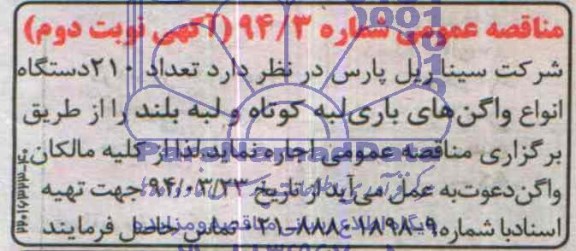 مناقصه عمومی شماره ۹۴/۳ (آگهی نوبت دوم)
شرکت سینا ریل پارس در نظر دارد تعداد ۲۱۰دستگاه
انواع واگن‌های باری لبه کوتاه و لبه بلند را از طریق
برگزاری مناقصه عمومی اجاره نماید لذا از کلیه مالکان
واگن دعوت به عمل می‌آید از تاریخ ۹۴/۰۳/۲۳ جهت تهیه
اسناد با شماره ۹-۸۸۸۰۱۸۹۸-۰۲۱ تماس حاصل فرمایند